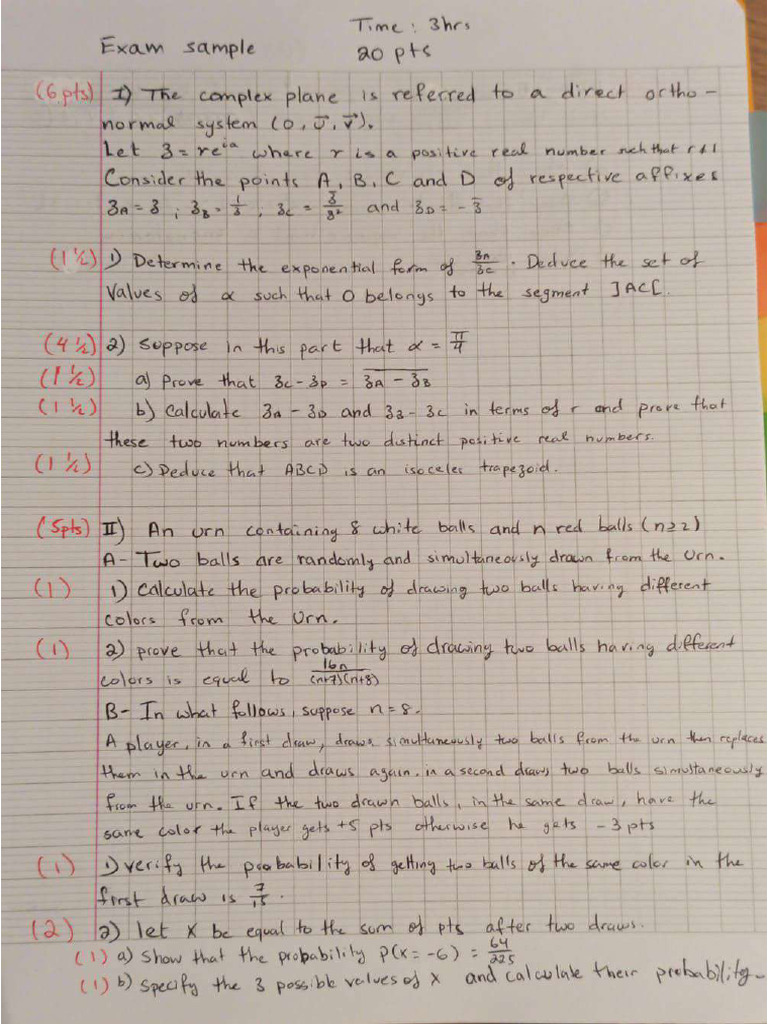 Time: 3hrs
Exam sample
20 pts
(6 pts) I) The complex plane is referred to a direct ortho-
normal system (O, u⃗, v⃗).
Let z = re^{iα} where r is a positive real number such that r≠1
Consider the points A, B, C and D of respective affixes
z_A = z ; z_B = 1/z̄ ; z_C = z̄/z² and z_D = - z̄
(1 1/2) 1) Determine the exponential form of z_A/z_C. Deduce the set of
values of α such that O belongs to the segment ]AC[.
(4 1/2) 2) Suppose in this part that α = π/4
(1 1/2) a) Prove that z_C - z_D = \overline{z_A - z_B}
(1 1/2) b) Calculate z_A - z_D and z_B - z_C in terms of r and prove that
these two numbers are two distinct positive real numbers.
(1 1/2) c) Deduce that ABCD is an isoceles trapezoid.
(5pts) II) An urn containing 8 white balls and n red balls (n≥2)
A- Two balls are randomly and simultaneously drawn from the urn.
(1) 1) Calculate the probability of drawing two balls having different
colors from the urn.
(1) 2) prove that the probability of drawing two balls having different
colors is equal to 16n/(n+7)(n+8)
B- In what follows, suppose n=8.
A player, in a first draw, draws simultaneously two balls from the urn then replaces
them in the urn and draws again, in a second draw, two balls simultaneously
from the urn. If the two drawn balls, in the same draw, have the
same color the player gets +5 pts otherwise he gets -3 pts
(1) 1) verify the probability of getting two balls of the same color in the
first draw is 7/15.
(2) 2) let X be equal to the sum of pts after two draws.
(1) a) Show that the probability P(X=-6) = 64/225
(1) b) Specify the 3 possible values of X and calculate their probability.